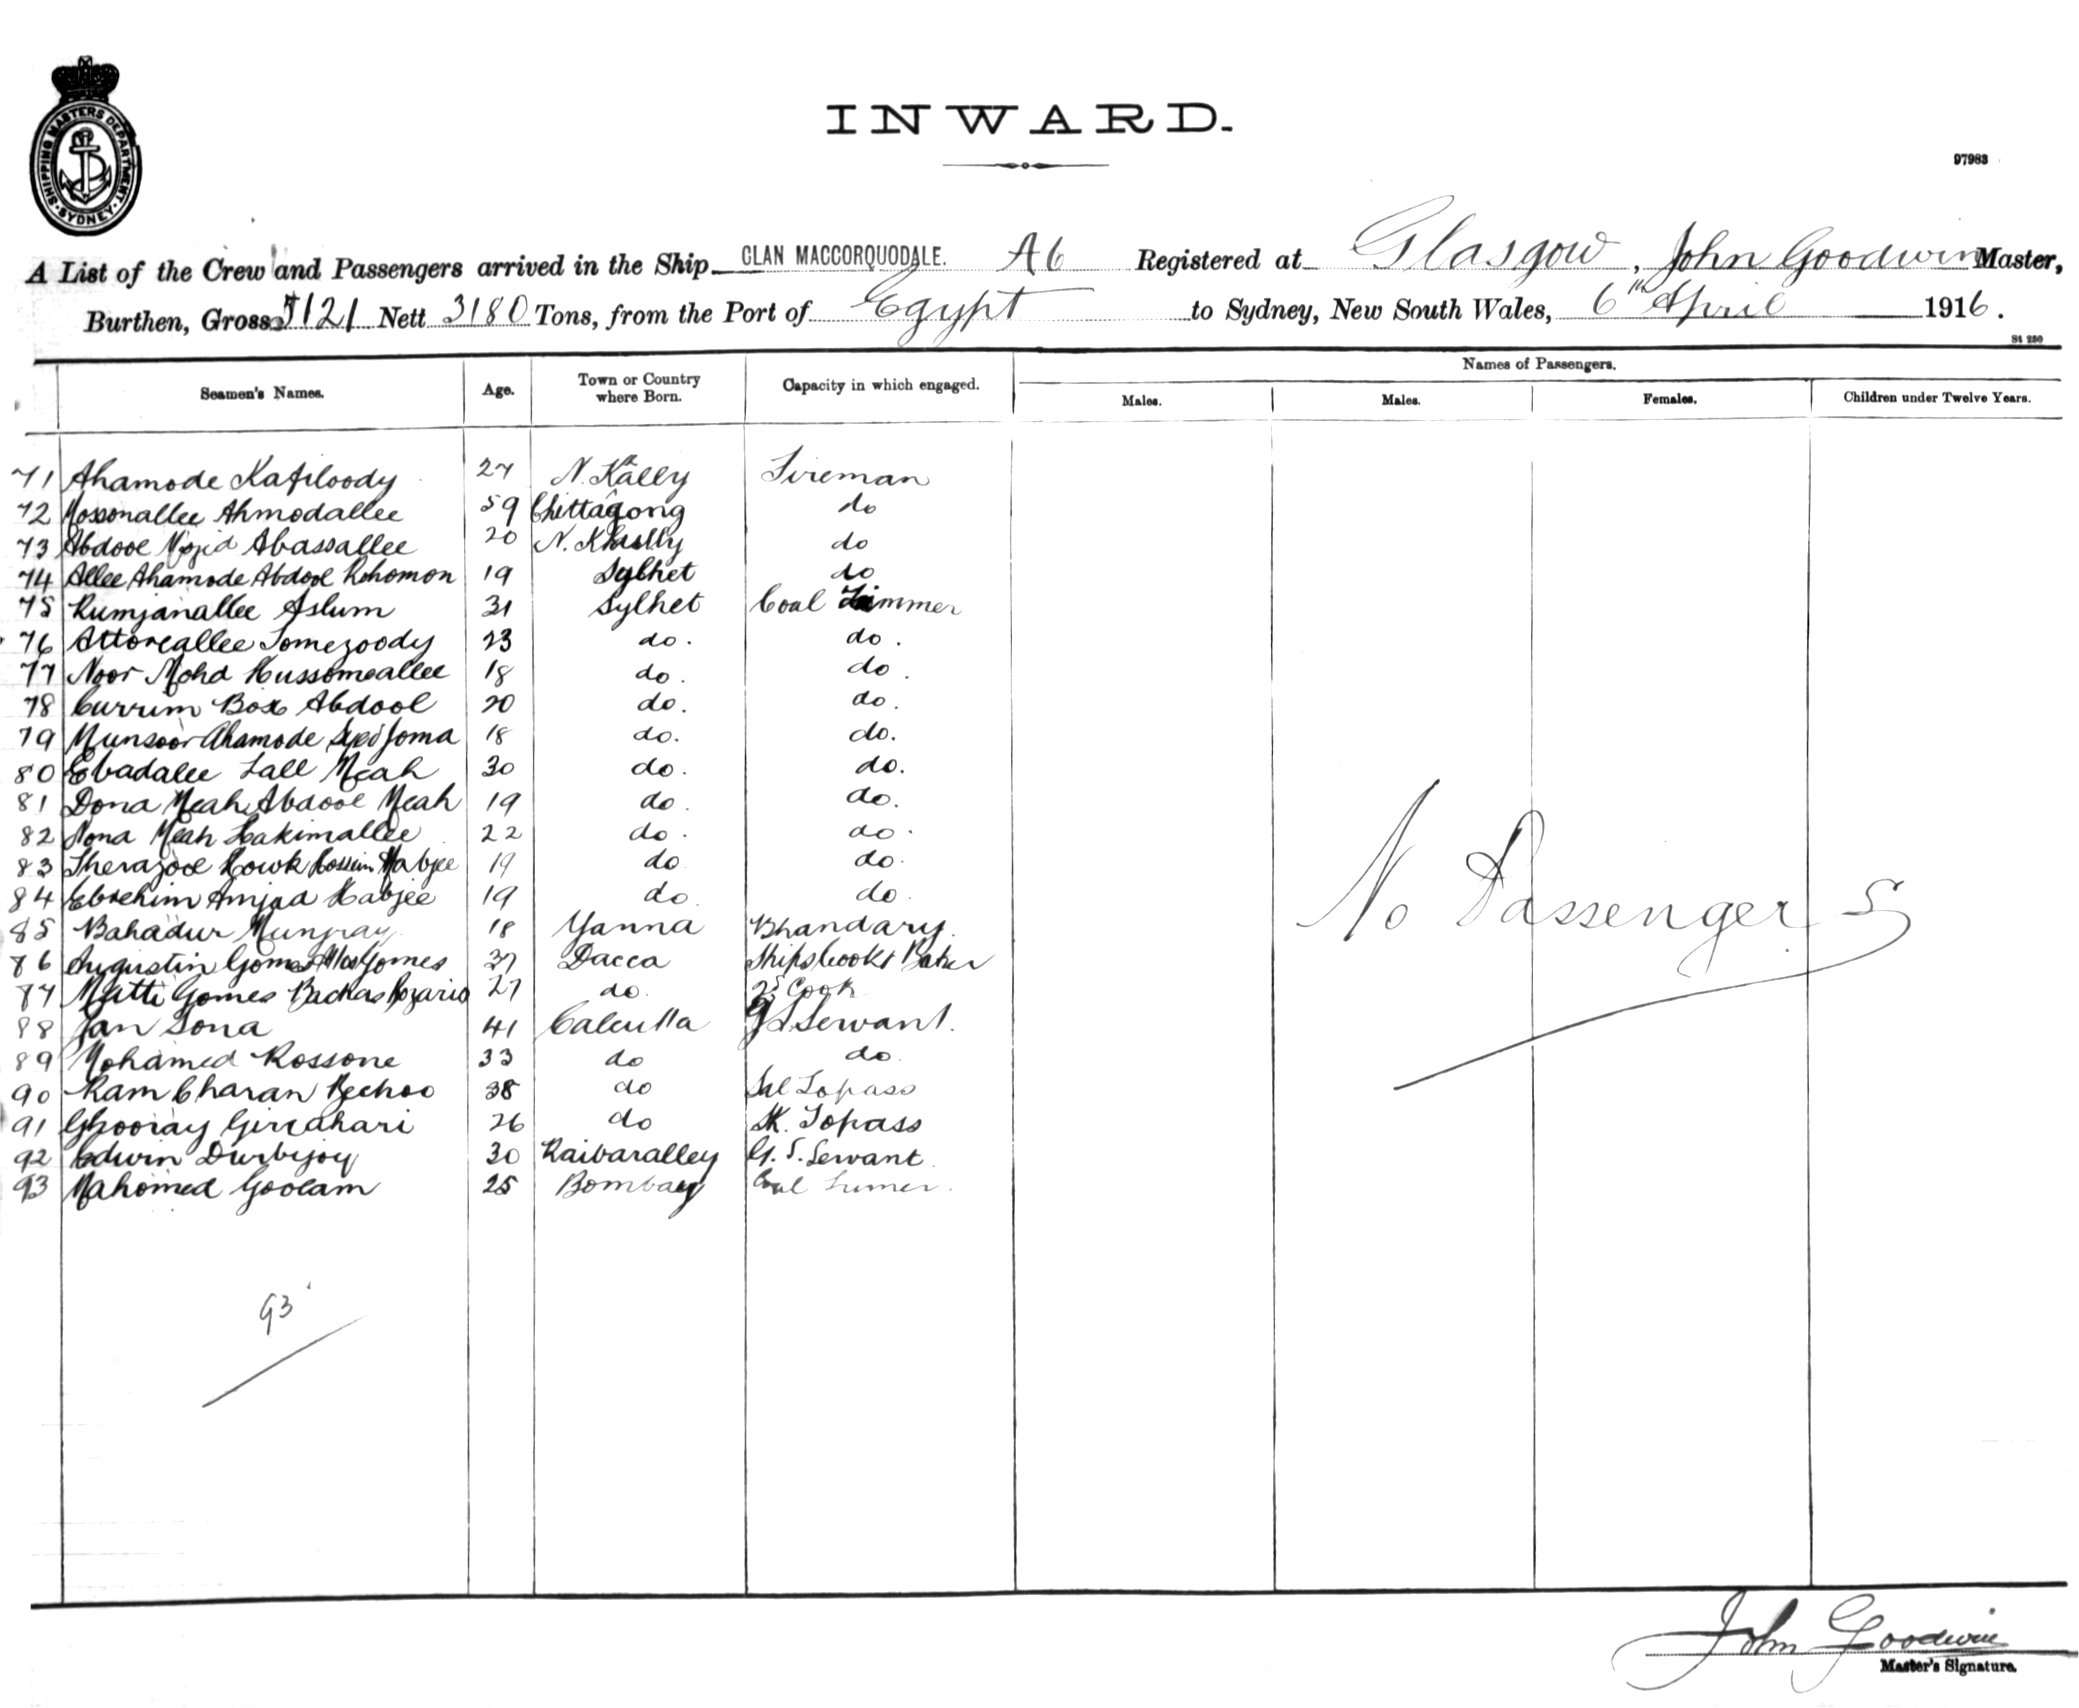 SHIPPING MASTERS DEPARTMENT
SYDNEY
INWARD.
97983
A List of the Crew and Passengers arrived in the Ship CLAN MACCORQUODALE. A6 Registered at Glasgow, John Goodwin Master,
Burthen, Gross 5121 Nett 3180 Tons, from the Port of Egypt to Sydney, New South Wales, 6th April 1916.
St 250
Seamen's Names. Age. Town or Country where Born. Capacity in which engaged. Names of Passengers.
Males. Males. Females. Children under Twelve Years.
71 Ahamode Kafiloody 27 N. Kally Fireman
72 Mossonallee Ahmodallee 59 Chittagong do
73 Abdool Mojid Abassallee 20 N. do
74 Allee Ahamode Abdool Rohomon 19 Sylhet do
75 Rumjanallee Aslum 31 Sylhet Coal Trimmer
76 Attoreallee Tomezoody 23 do. do.
77 Noor Mohd Hussomeallee 18 do. do.
78 Currim Box Abdool 20 do. do.
79 Munsoor Ahamode Soma 18 do. do.
80 Ebadalee Lall Meah 30 do. do.
81 Dona Meah Abdool Meah 19 do. do.
82 Sona Meah Hakimallee 22 do. do.
83 Sherazool Howk Hossein Habjee 19 do do.
84 Ebrehim Amjad Habjee 19 do. do.
85 Bahadur 18 Yanna Bhandary.
86 Augustin Gomes Gomes 37 Dacca Ships Cook & Baker
87 Matti Gomes Backas Rozario 27 do. Cook
88 Jan Sona 41 Calcutta Servant.
89 Mohamed Rossone 33 do do.
90 Ram Charan Beehoo 38 do Topass
91 Ghooray Girdhari 26 do Topass
92 Edwin Durbijoy 30 Raibaralley G. S. Servant.
93 Mahomed Goolam 25 Bombay Coal
No Passengers
93
John Goodwin
Master's Signature.